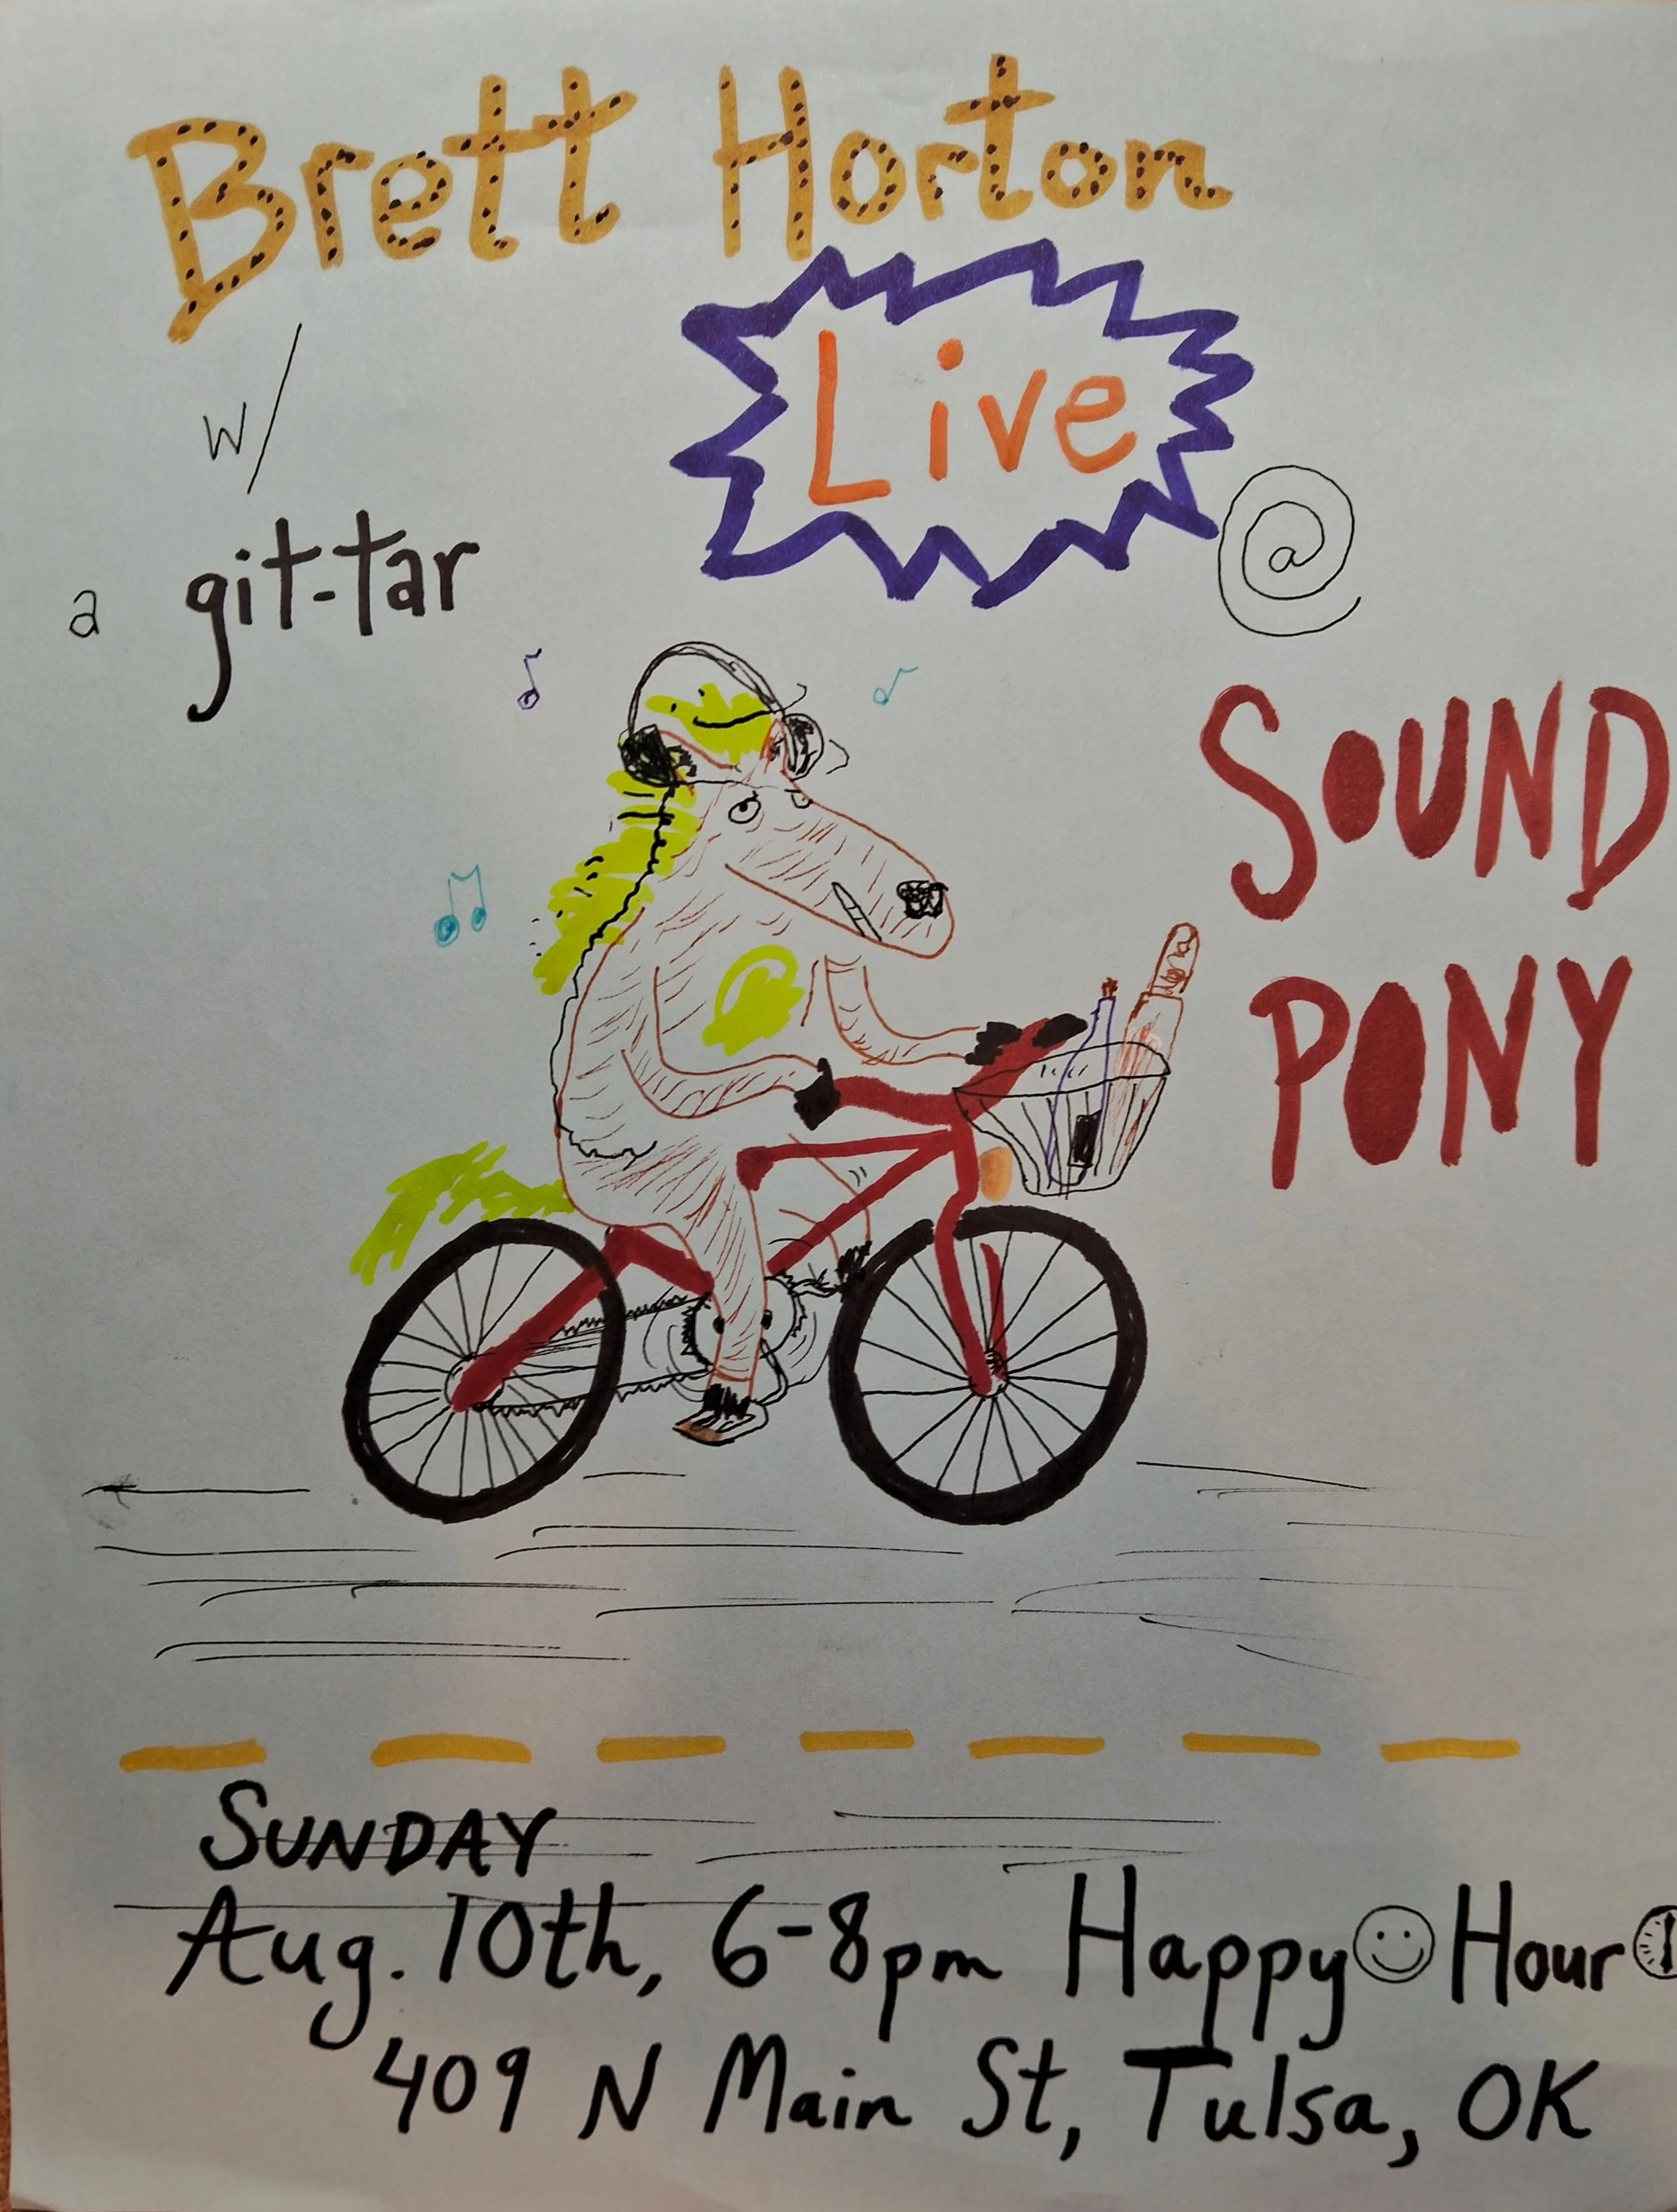 Brett Horton
w/
a git-tar
Live
@
SOUND
PONY
SUNDAY
Aug. 10th, 6-8pm Happy Hour
409 N Main St, Tulsa, OK